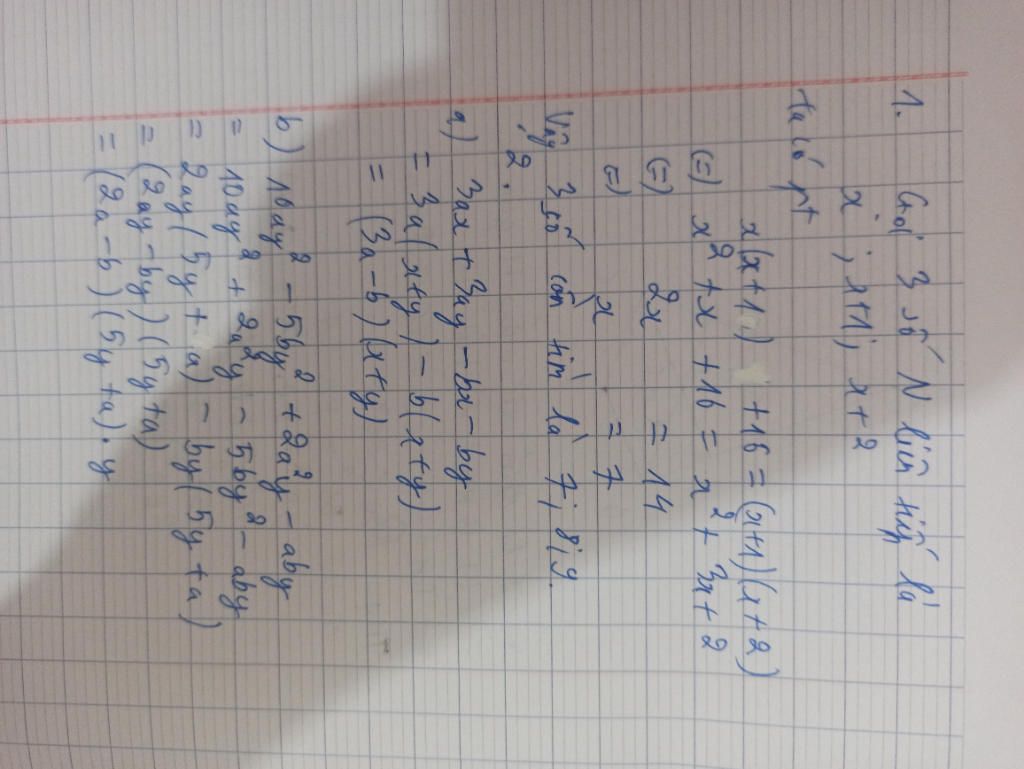 1. Gọi 3 số N liên tiếp là
x ; x+1 ; x+2
ta có pt
x(x+1) +16 = (x+1)(x+2)
(=) x² + x + 16 = x² + 3x + 2
(=) 2x = 14
(=) x = 7
Vậy 3 số cần tìm là 7; 8; 9.
2.
a) 3ax + 3ay - bx - by
= 3a(x+y) - b(x+y)
= (3a-b)(x+y)
b) 10ay² - 5by² + 2a²y - aby
= 10ay² + 2a²y - 5by² - aby
= 2ay(5y + a) - by(5y + a)
= (2ay - by)(5y + a)
= (2a - b)(5y + a).y